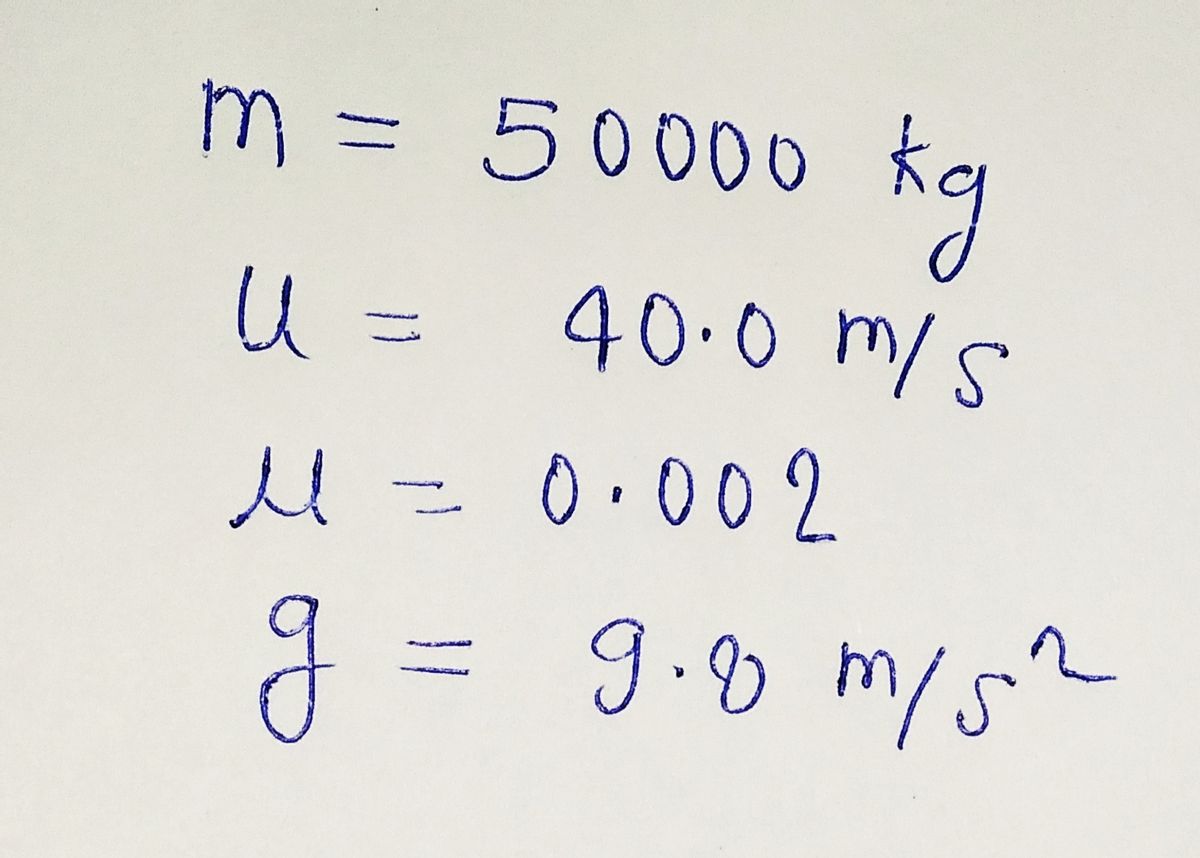 m = 50000 kg
u = 40.0 m/s
μ = 0.002
g = 9.8 m/s²